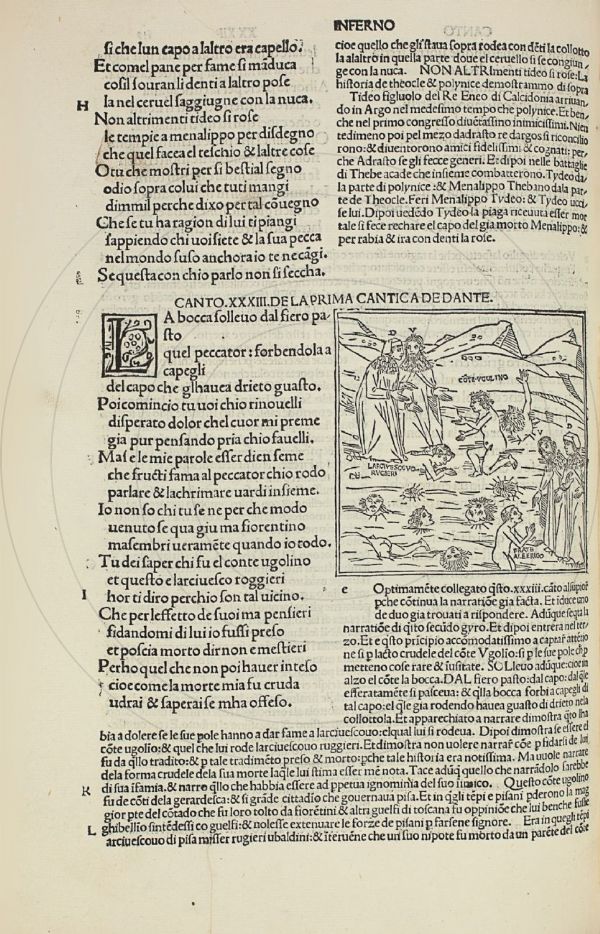 INFERNO
si che lun capo alaltro era capello.
Et comel pane per fame si mãduca
cosi lsouran li denti a laltro pose
H la nel ceruel saggiugne con la nuca.
Non altrimenti tideo si rose
le tempie a menalippo per disdegno
che quel facea el teschio & laltre cose
O tu che mostri per si bestial segno
odio sopra colui che tuti mangi
dimmil perche dixo per tal cõuegno
Che se tu ha ragion di lui ti piangi
sappiendo chi uoi siete & la sua pecca
nel mondo suso anchora io te ne cãgi.
Se questa con chio parlo non si seccha.
cioe quello che gli staua sopra rodea con dẽti la collotto
la alaltro in quella parte doue el ceruello si se congiun
ge con la nuca. NON ALTRImenti tideo si rose: La
historia de theocle & polynice demostrammo di sopra
Tideo figluolo del Re Eneo di Calcidonia arriuan
do in Argo nel medesimo tempo che polynice. Et ben
che nel primo congresso diuẽtassino inimicissimi. Nien
tedimeno poi pel mezo dadrasto re dargos si riconcilio
rono: & diuentorono amici fidelissimi & cognati: per
che Adrasto se gli fecce generi. Et dipoi nelle battaglie
di Thebe acade che insieme combatterono. Tydeo da
la parte di polynice: & Menalippo Thebano dala par
te de Theocle. Feri Menalippo Tydeo: & Tydeo ucci
se lui. Dipoi uedẽdo Tydeo la piaga riceuuta esser mor
tale si fece rechare el capo del gia morto Menalippo: &
per rabia & ira con denti la rose.
CANTO. XXXIII. DE LA PRIMA CANTICA DE DANTE.
LA bocca solleuo dal fiero pa-
sto
quel peccator: forbendola a
capegli
del capo che glhauea drieto guasto.
Poi comincio tu uoi chio rinouelli
disperato dolor chel cuor mi preme
gia pur pensando pria chio fauelli.
Ma se le mie parole esser dien seme
che fructi fama al peccator chio rodo
parlare & lachrimare uardi insieme.
Io non so chi tu se ne per che modo
uenuto se qua giu ma fiorentino
ma sembri ueramẽte quando io todo.
Tu dei saper chi fu el conte ugolino
et questo e larciuesco roggieri
I hor ti diro perchio son tal uicino.
Che per leffetto de suoi ma pensieri
fidandomi di lui io fussi preso
et poscia morto dir non e mestieri
Perho quel che non poi hauer inteso
cioe come la morte mia fu cruda
udrai & saperai se mha offeso.
D V
CÕTE VGOLINO
LARCIVESCOVO
RUGIERI
V D
FRATE
ALBERIGO
e Optimamẽte collegato q̃sto .xxxiii. cãto al supior
pche cõtinua la narratiõe gia facta. Et iduce uno
de duo gia trouati a rispondere. Adũque seq̃ta la
narratiõe di q̃sto secũdo gyro. Et dipoi entrera nel ter-
zo. Et q̃sto pricipio accomodatissimo a captar attẽtio
ne si p lacto crudele del cõte Vgolio: si p le sue pole ch̃ p
metteno cose rare & fusitate. SOLleuo adũque: cioe in
alzo el cõte la boccũ. DAL fiero pasto: dal capo: dal q̃le
efferatamẽte si pasceua: & q̃lla bocca forbi a capegli di
tal capo: el q̃le gia rodendo hauea guasto di drieto nela
collottola. Et apparechiato a narrare dimostra q̃to lha
bia a dolere se le sue pole hanno a dar fame a larciuescouo: elqual lui si rodeua. Dipoi dimostra se essere el
cõte ugolio: & quel che lui rode larciuescouo ruggieri. Et dimostra non uolere narrar cõe p fidarsi de lui
fu da q̃llo tradito: & p tale tradimẽto preso & morto: pche tale historia era notissima. Ma uuole narrare
dela forma crudele dela sua morte laq̃le lui stima esser mẽ nota. Tace adũq̃ quello che narrãdolo sarebbe
K di sua ifamia. & narro q̃llo che habbia essere ad ppetua ignominia del suo inimico. Questo cõte ugolino
fu de cõti dela gerardesca: & si grãde cittadio che gouernaua pisa. Et in q̃gli tẽpi e pisani pderono la mag
gior pte del cõtado che fu loro tolto da fiorẽtini & altra guelfi di toscana fu oppiniõe che lui benche fusse
L ghibellio sintẽdessi co guelfi: & nolesse extenuare le forze de pisani p farsene signore. Era in quegli tẽpi
arciuescouo di pisa misser rugieri ubaldini: & iteruẽne che un suo nipote fu morto da un parẽte del cõte